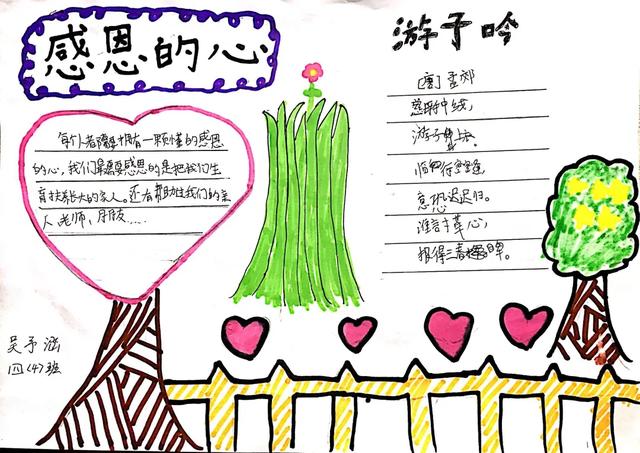 感恩的心
每个人都需要拥有一颗懂的感恩
的心,我们最要感恩的是把我们生
育扶养长大的家人。还有帮助过我们的亲
人,老师,朋友……
吴予涵
四(4)班
游子吟
[唐]孟郊
慈母手中线,
游子身上衣
临行密密缝
意恐迟迟归。
谁言寸草心,
报得三春晖。